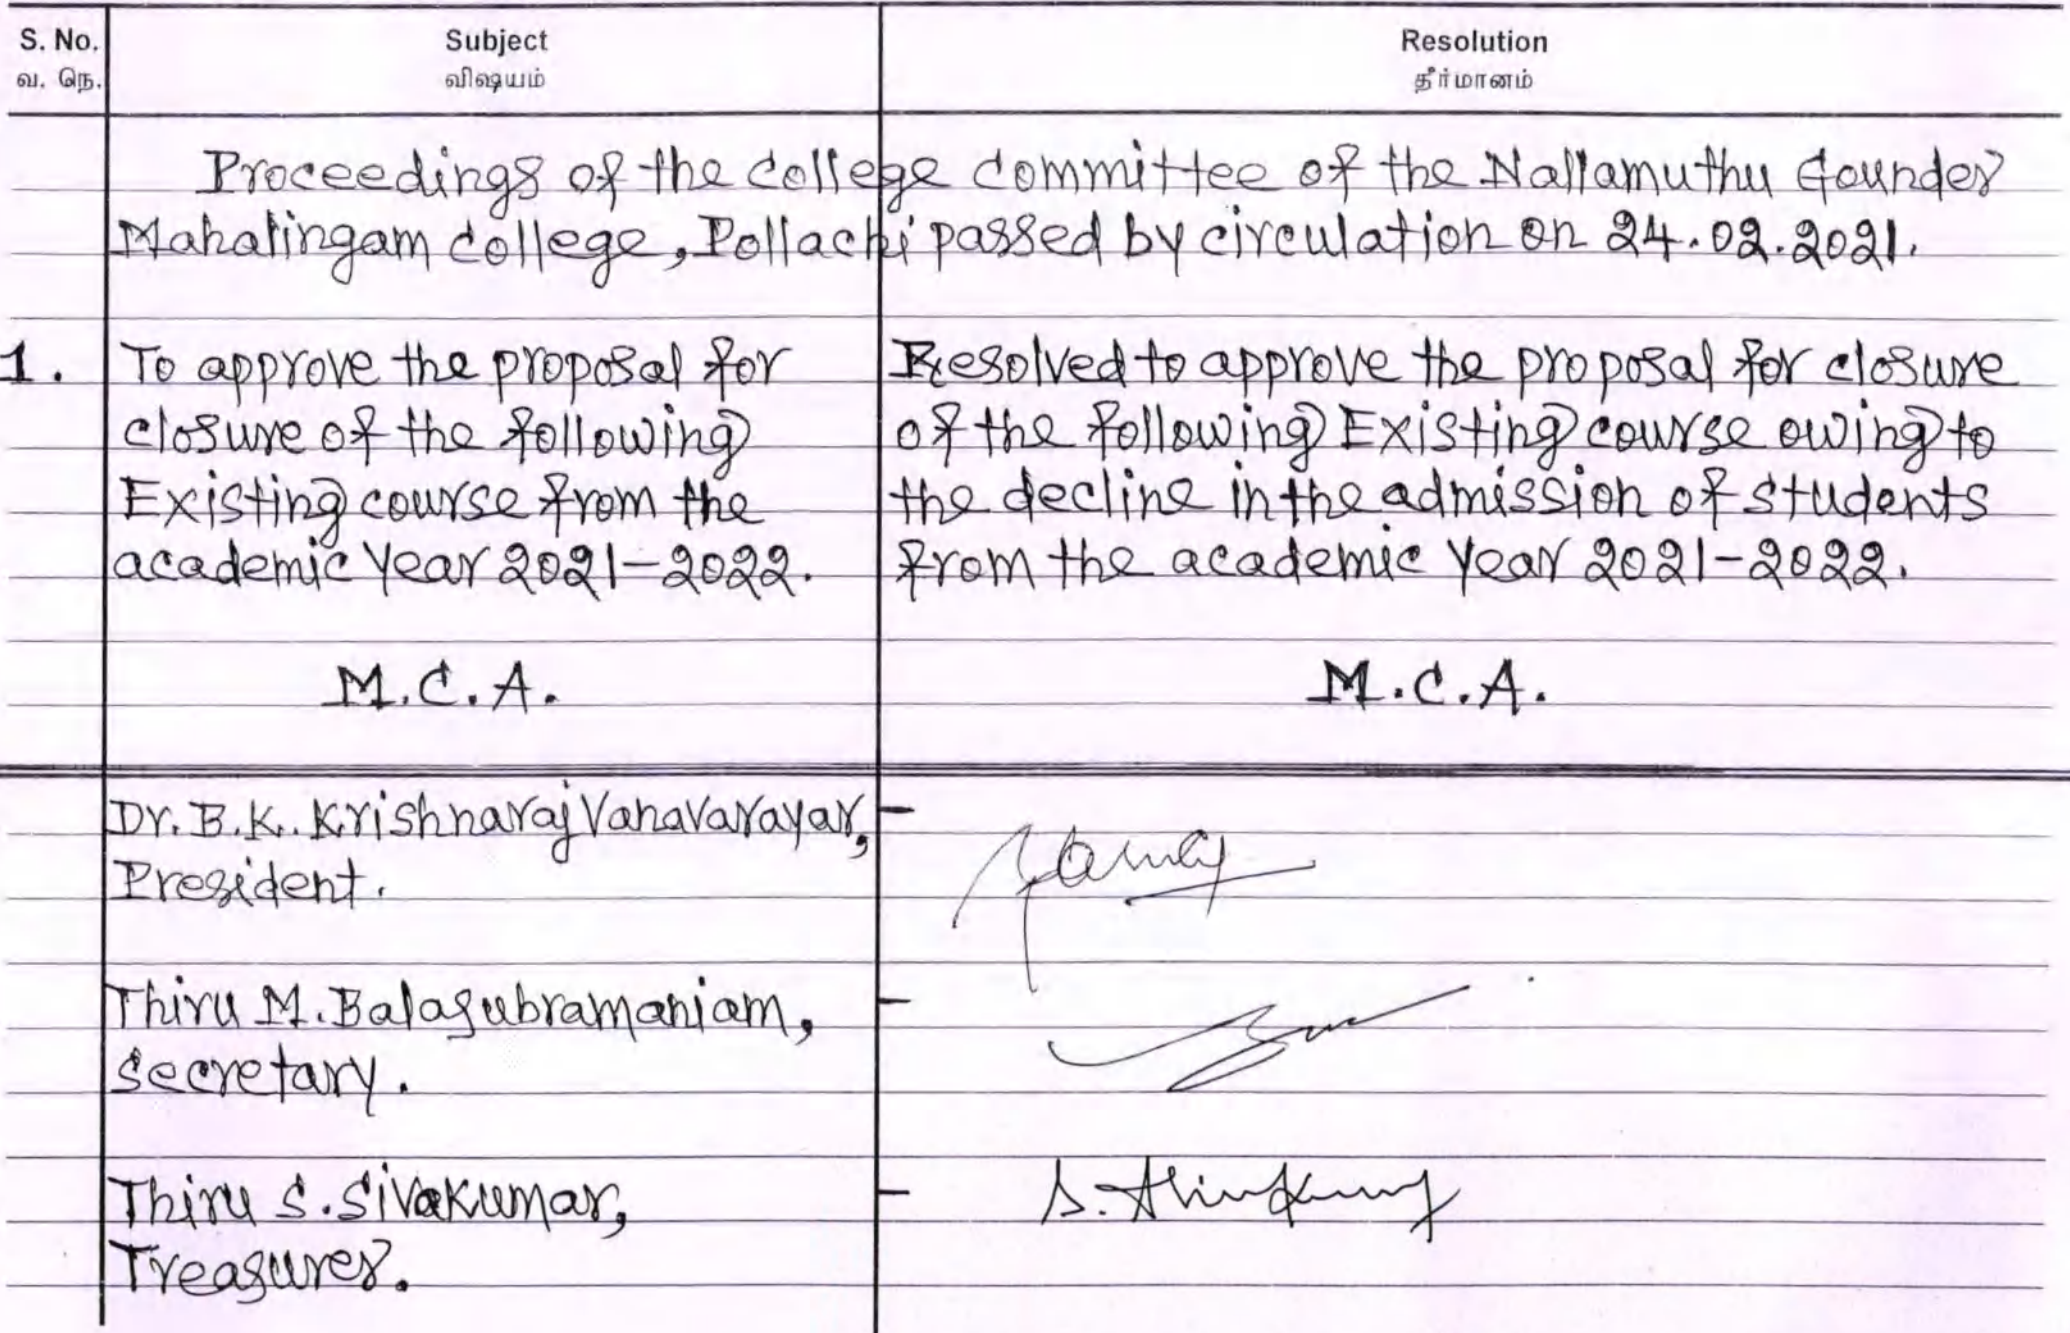 S. No. Subject Resolution
வ. நெ. விஷயம் தீர்மானம்
Proceedings of the college committee of the Nallamuthu Gounder
Mahalingam college, Pollachi passed by circulation on 24.02.2021.
1. To approve the proposal for
closure of the following
Existing course from the
academic year 2021-2022.
M.C.A.
Resolved to approve the proposal for closure
of the following Existing course owing to
the decline in the admission of students
from the academic year 2021-2022.
M.C.A.
Dr. B.K. Krishnaraj Vanavarayar, -
President.
Thiru M. Balasubramaniam, -
Secretary.
Thiru S. Sivakumar, -
Treasurer.